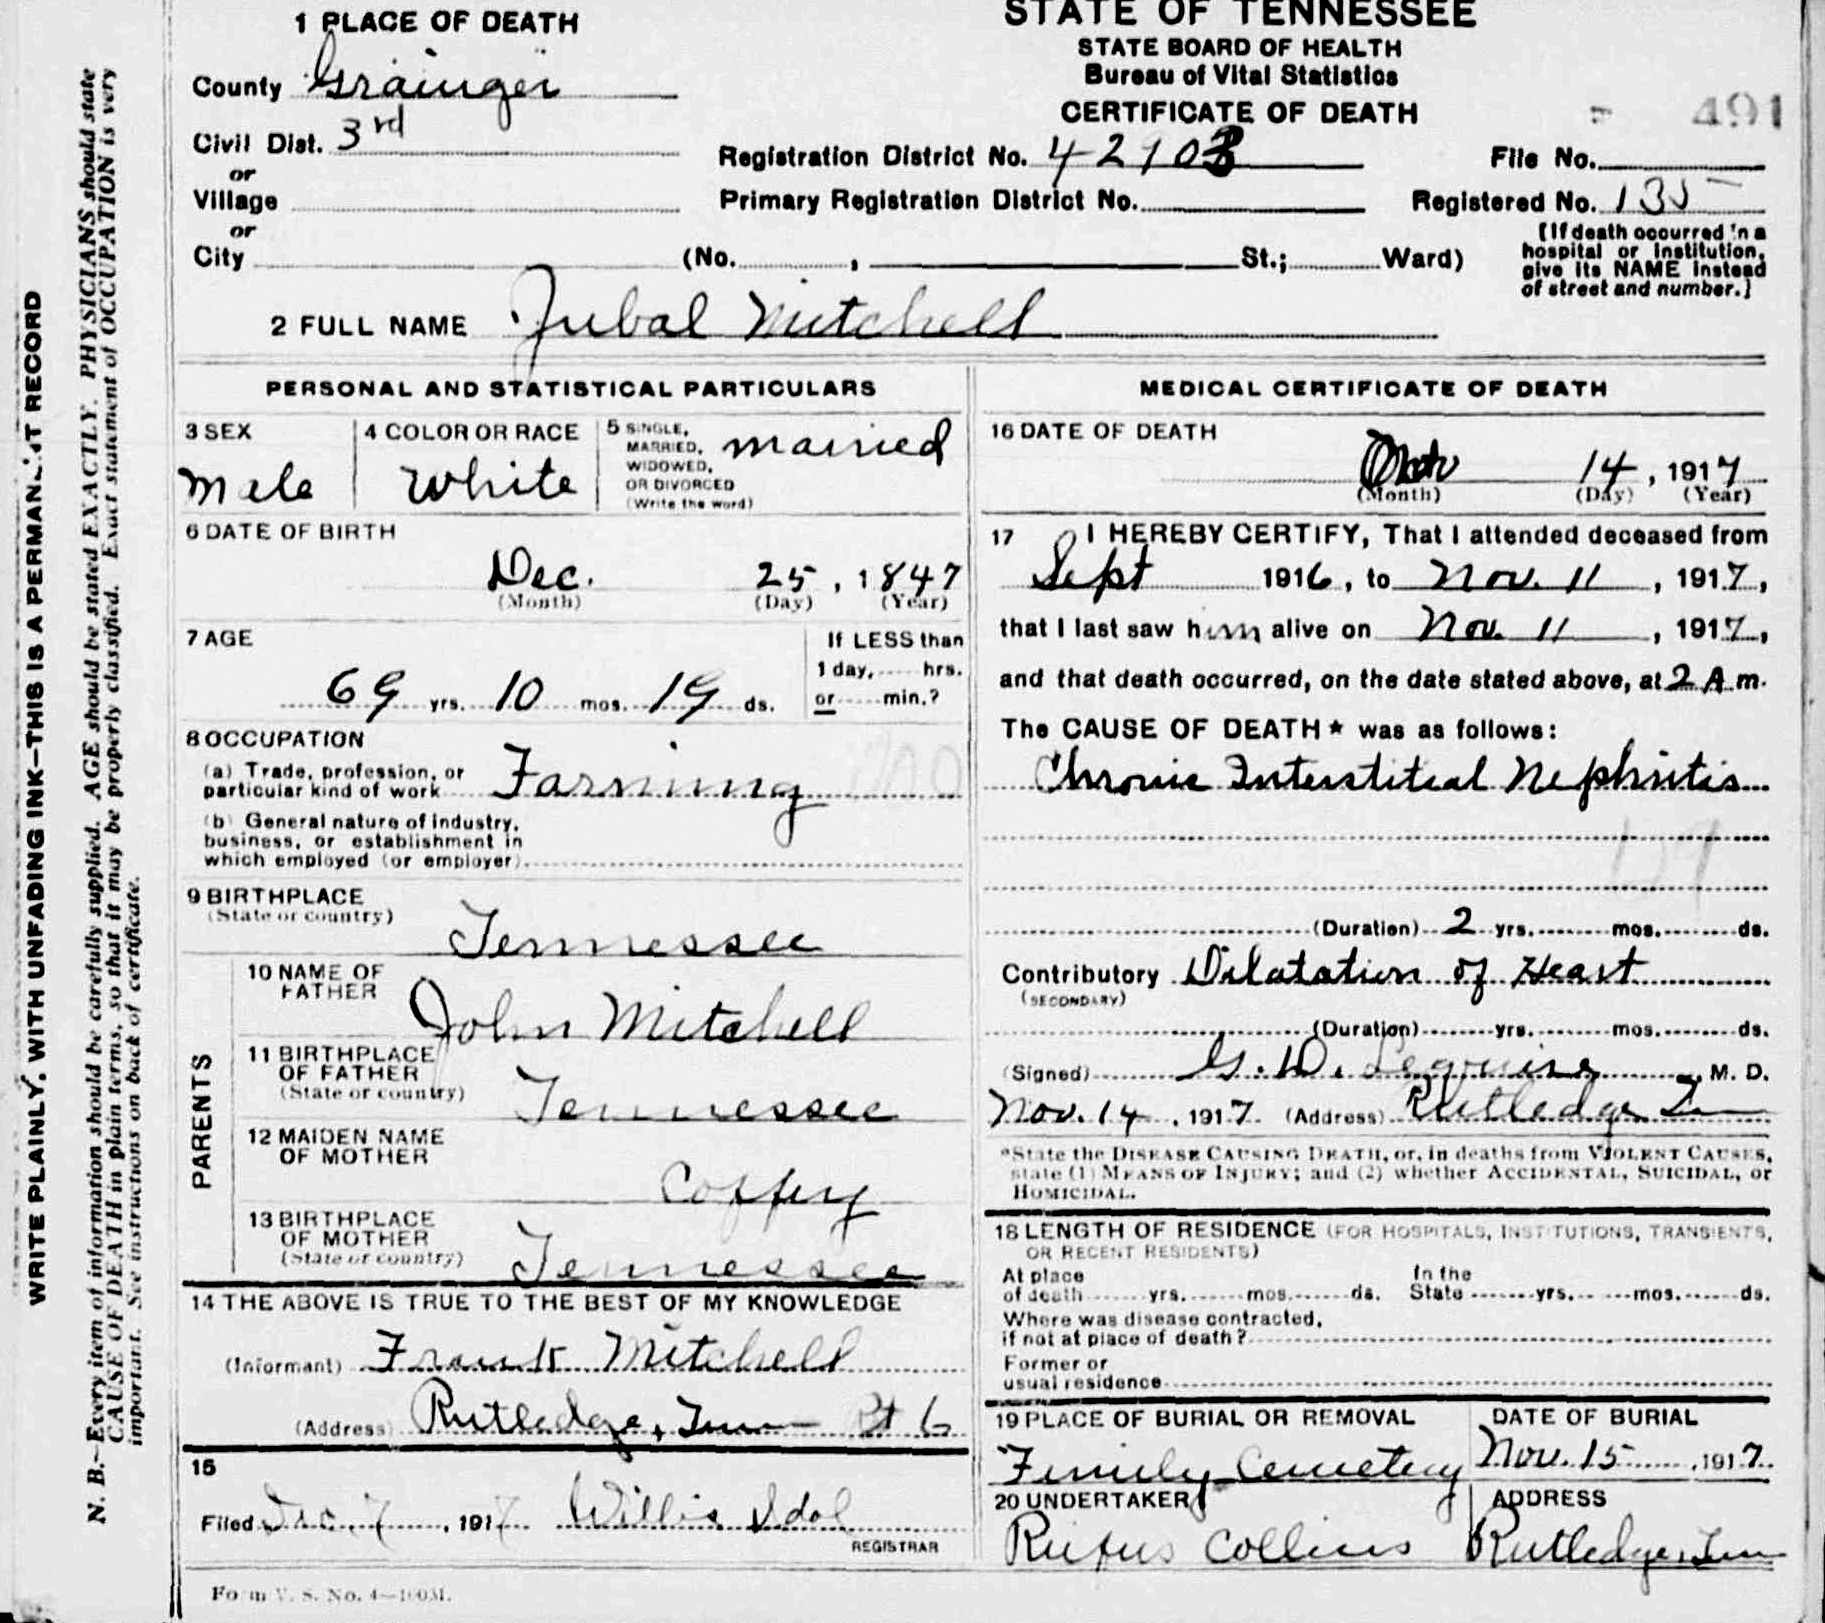 1 PLACE OF DEATH
STATE OF TENNESSEE
STATE BOARD OF HEALTH
Bureau of Vital Statistics
CERTIFICATE OF DEATH
491
County Grainger
Civil Dist. 3rd
or
Village
or
City (No. , St.; Ward)
Registration District No. 42903
File No.
Primary Registration District No.
Registered No. 135
[If death occurred in a
hospital or institution,
give its NAME instead
of street and number.]
2 FULL NAME Jubal Mitchell
PERSONAL AND STATISTICAL PARTICULARS
3 SEX
Male
4 COLOR OR RACE
White
5 SINGLE,
MARRIED,
WIDOWED,
OR DIVORCED
(Write the word)
married
6 DATE OF BIRTH
Dec. 25, 1847
(Month) (Day) (Year)
7 AGE
69 yrs. 10 mos. 19 ds.
If LESS than
1 day, hrs.
or min.?
8 OCCUPATION
(a) Trade, profession, or
particular kind of work Farming
(b) General nature of industry,
business, or establishment in
which employed (or employer)
9 BIRTHPLACE
(State or country)
Tennessee
PARENTS
10 NAME OF
FATHER
John Mitchell
11 BIRTHPLACE
OF FATHER
(State or country)
Tennessee
12 MAIDEN NAME
OF MOTHER
Coffey
13 BIRTHPLACE
OF MOTHER
(State or country)
Tennessee
14 THE ABOVE IS TRUE TO THE BEST OF MY KNOWLEDGE
(Informant) Frank Mitchell
(Address) Rutledge, Tenn Rt 6
15
Filed Dec. 7, 1917 Willis Idol
REGISTRAR
Form V. S. No. 4
MEDICAL CERTIFICATE OF DEATH
16 DATE OF DEATH
Nov 14, 1917
(Month) (Day) (Year)
17 I HEREBY CERTIFY, That I attended deceased from
Sept 1916, to Nov. 11, 1917,
that I last saw him alive on Nov. 11, 1917,
and that death occurred, on the date stated above, at 2 A m.
The CAUSE OF DEATH* was as follows:
Chronic Interstitial Nephritis
(Duration) 2 yrs. mos. ds.
Contributory Dilatation of Heart
(SECONDARY)
(Duration) yrs. mos. ds.
(Signed) G. D. Lequire, M. D.
Nov. 14, 1917 (Address) Rutledge Tn
*State the DISEASE CAUSING DEATH, or, in deaths from VIOLENT CAUSES,
state (1) MEANS OF INJURY; and (2) whether ACCIDENTAL, SUICIDAL, or
HOMICIDAL.
18 LENGTH OF RESIDENCE (FOR HOSPITALS, INSTITUTIONS, TRANSIENTS,
OR RECENT RESIDENTS)
At place
of death yrs. mos. ds.
In the
State yrs. mos. ds.
Where was disease contracted,
if not at place of death?
Former or
usual residence
19 PLACE OF BURIAL OR REMOVAL
Family Cemetery
DATE OF BURIAL
Nov. 15, 1917
20 UNDERTAKER
Rufus Collins
ADDRESS
Rutledge, Tenn
WRITE PLAINLY, WITH UNFADING INK—THIS IS A PERMANENT RECORD
N. B.—Every item of information should be carefully supplied. AGE should be stated EXACTLY. PHYSICIANS should state
CAUSE OF DEATH in plain terms, so that it may be properly classified. Exact statement of OCCUPATION is very
important. See instructions on back of certificate.